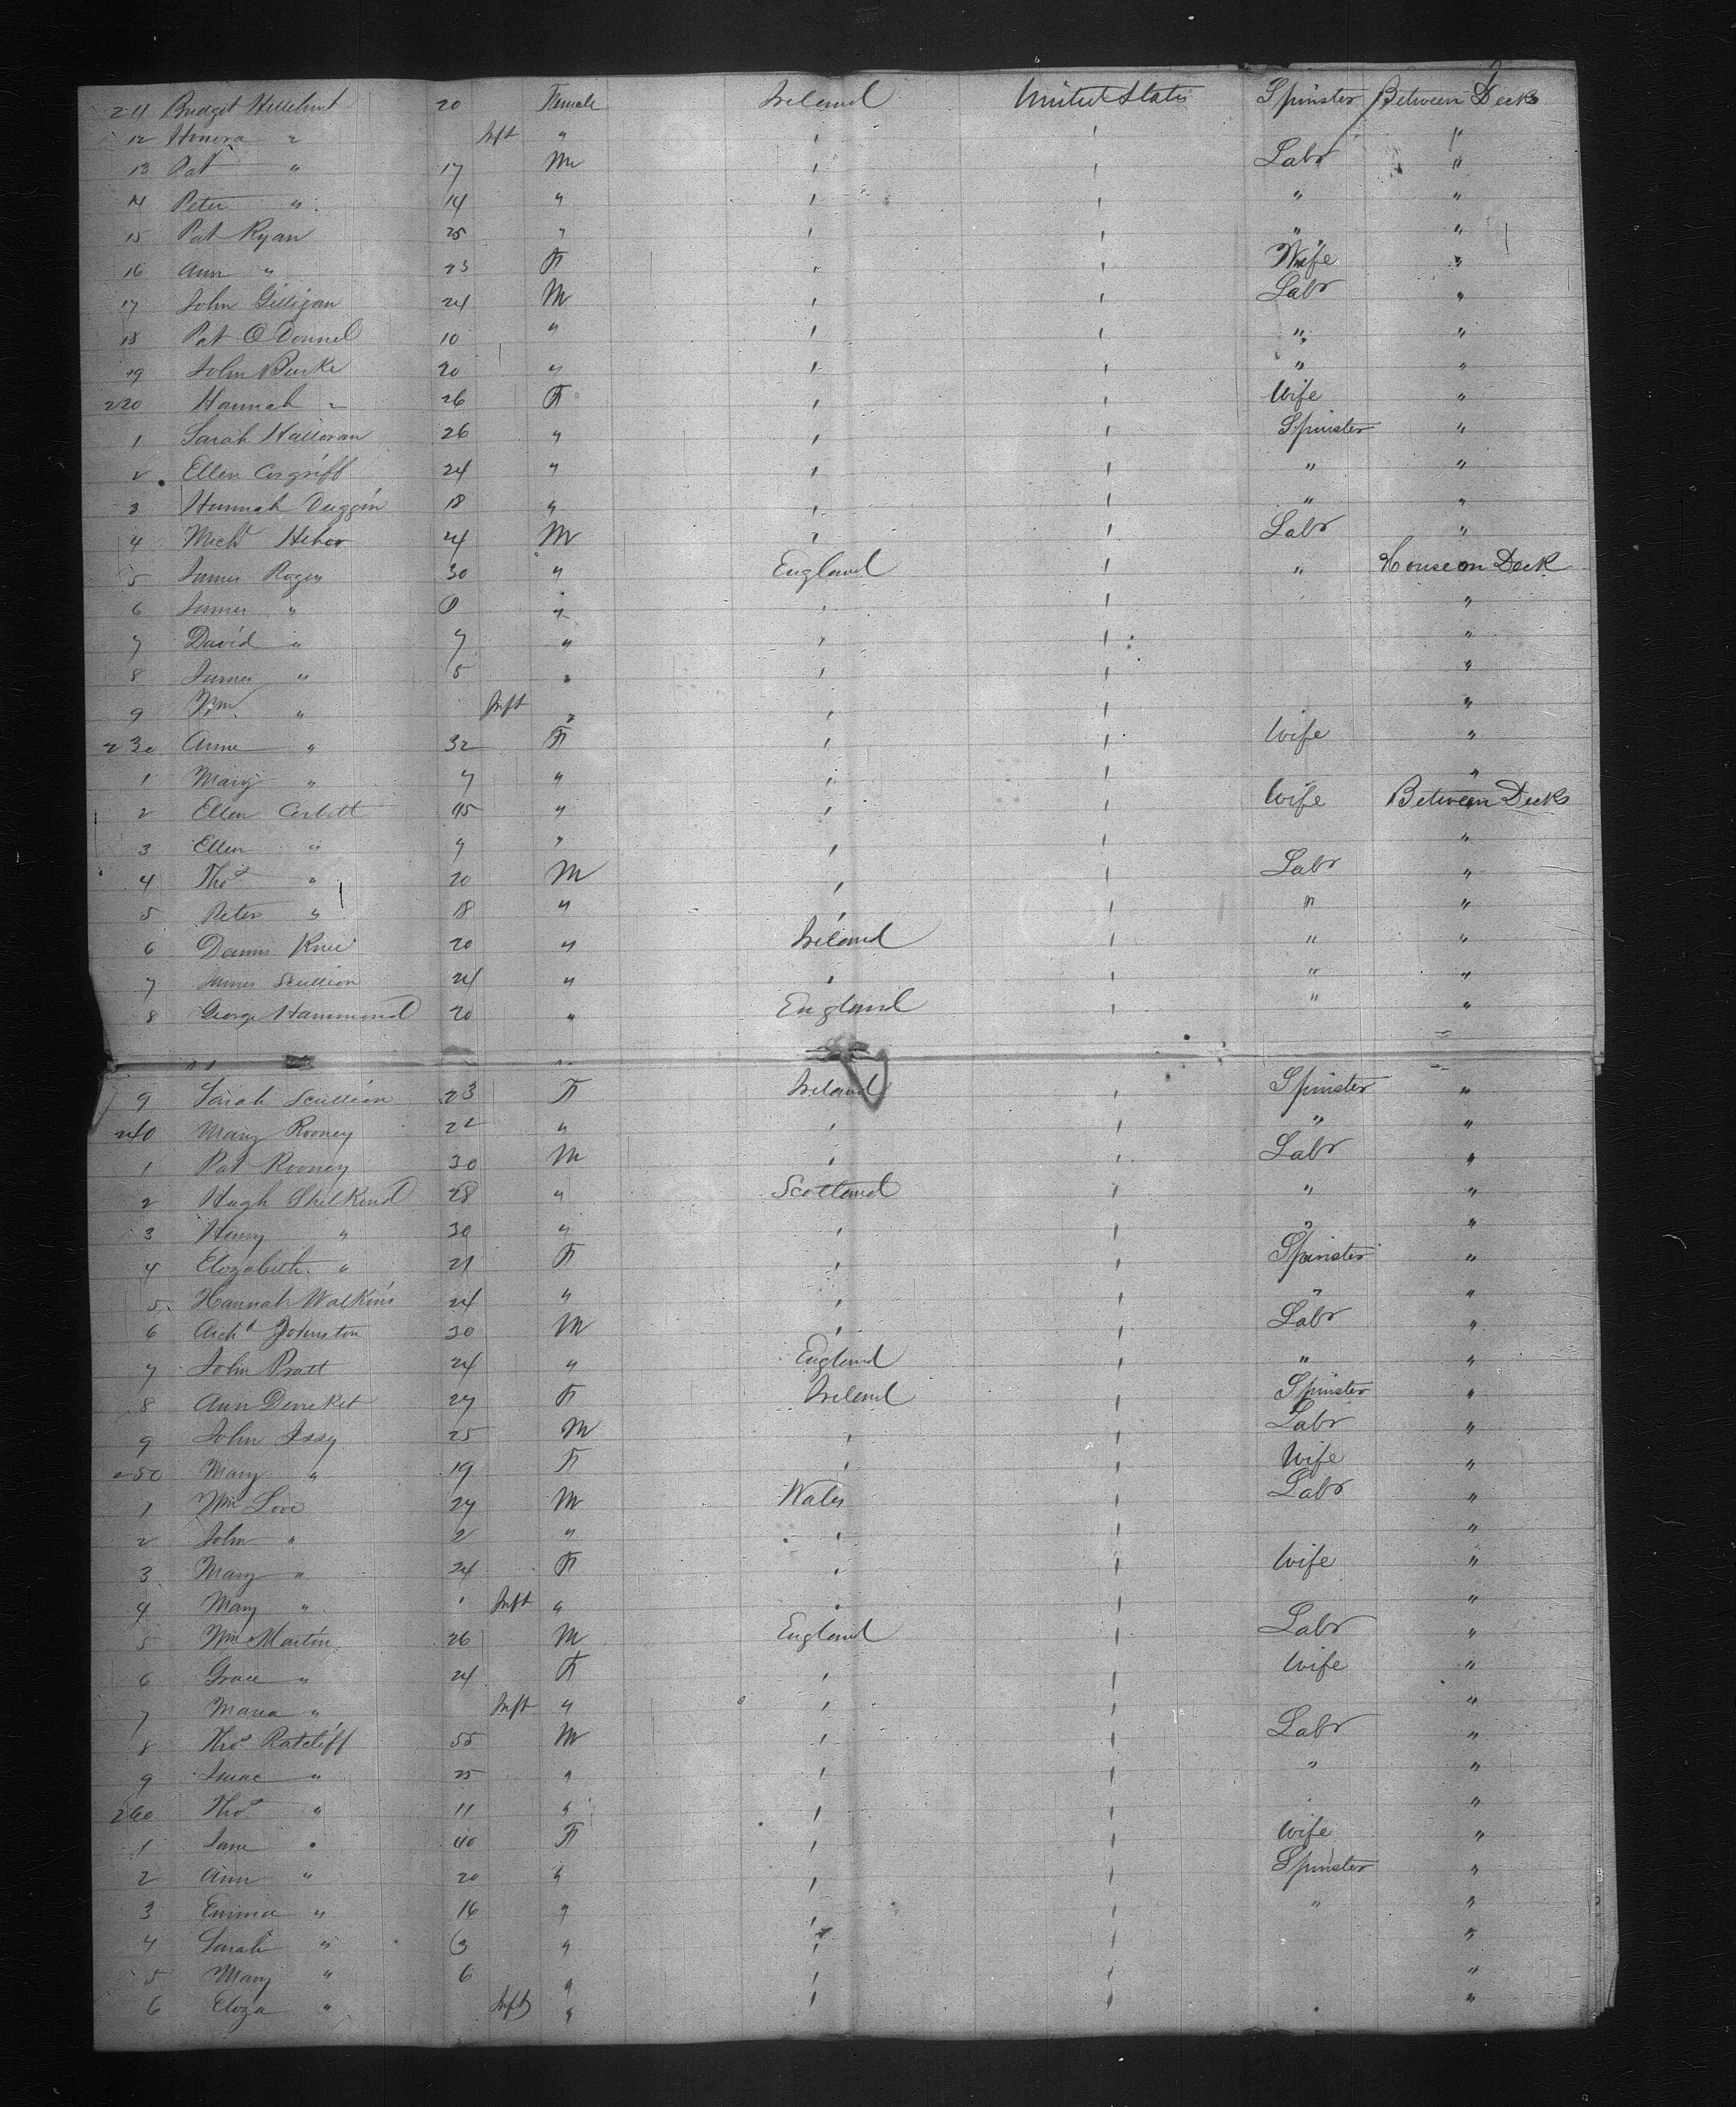 211 Bridget 20 Female Ireland United States Spinster Between Decks
12 Honora " Inft " ' ' "
13 Pat " 17 M ' ' Labr "
14 Peter " 14 " ' ' " "
15 Pat Ryan 25 " ' ' " "
16 Ann " 23 F ' ' Wife "
17 John Gilligan 24 M ' ' Labr "
18 Pat O Donnel 10 " ' ' " "
19 John Burke 20 " ' ' " "
220 Hannah " 26 F ' ' Wife "
1 Sarah Halloran 26 " ' ' Spinster "
2 Ellen Corgriff 24 " ' ' " "
3 Hannah Duggin 18 " ' ' " "
4 Michl 24 M ' ' Labr "
5 James Rogers 30 " England ' " House on Deck
6 James " " ' ' "
7 David " 7 " ' ' "
8 James " 5 " ' ' "
9 Wm " Inft " ' ' "
230 Anne " 32 F ' ' Wife "
1 Mary " 7 " ' ' "
2 Ellen Corbett 45 " ' ' Wife Between Decks
3 Ellen " 9 " ' ' "
4 Thos " 20 M ' ' Labr "
5 Peter " 18 " ' ' " "
6 Dennis 20 " Ireland ' " "
7 James Scullion 24 " ' ' " "
8 George Hammond 20 " England ' " "
9 Sarah Scullion 23 F Ireland ' Spinster "
240 Mary Rooney 22 " ' ' " "
1 Pat Rooney 30 M ' ' Labr "
2 Hugh 28 " Scotland ' " "
3 Henry " 30 " ' ' " "
4 Elozabeth " 21 F ' ' Spinster "
5 Hannah Walkins 24 " ' ' " "
6 Archd Johnston 30 M ' ' Labr "
7 John Pratt 24 " England ' " "
8 Ann 27 F Ireland ' Spinster "
9 John Issy 25 M ' ' Labr "
250 Mary " 19 F ' ' Wife "
1 Wm Love 27 M Wales ' Labr "
2 John " 2 " ' ' "
3 Mary " 24 F ' ' Wife "
4 Mary " ' Inft " ' ' "
5 Wm Martin 26 M England ' Labr "
6 Grace " 24 F ' ' Wife "
7 Maria " Inft " ' ' "
8 Thos Ratcliff 55 M ' ' Labr "
9 Isaac " 25 " ' ' " "
260 Thos " 11 " ' ' "
1 Jane " 40 F ' ' Wife "
2 Ann " 20 " ' ' Spinster "
3 Emma " 16 " ' ' " "
4 Sarah " " ' ' "
5 Mary " 6 " ' ' "
6 Eloza " Inft " ' ' "